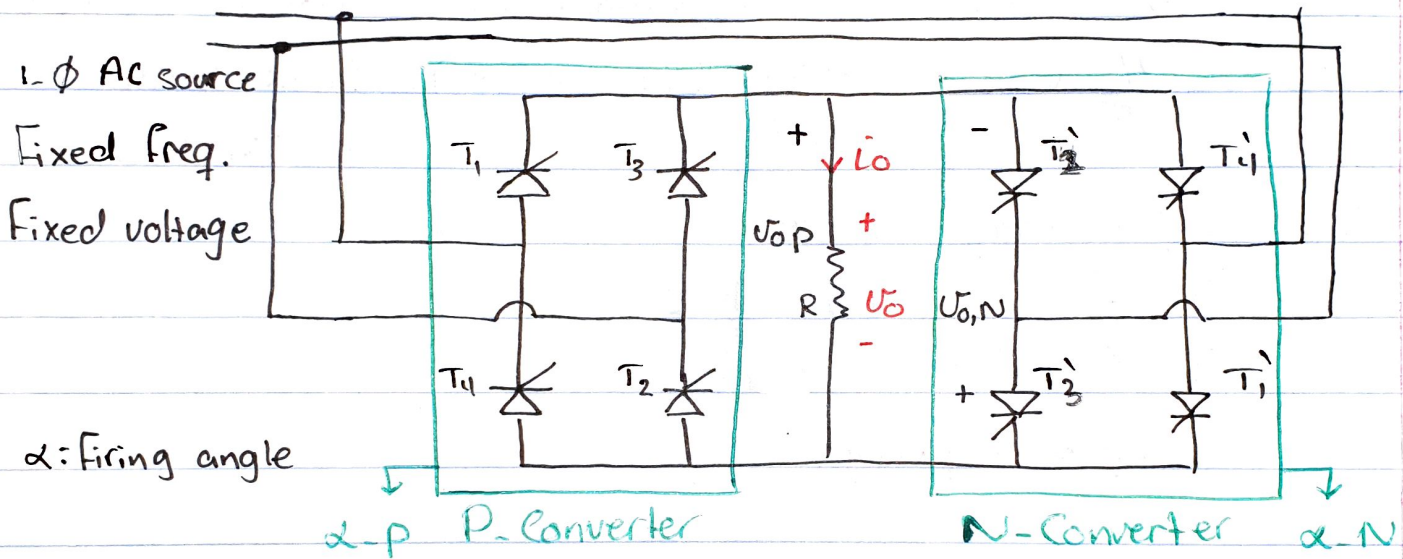 1-Φ AC source
Fixed freq.
Fixed voltage
α: Firing angle
T1
T3
T4
T2
+
io
vop
+
R
vo
-
-
T4'
vo,N
+
T3'
T1'
α-P
P-Converter
N-Converter
α-N